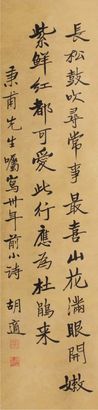 長松鼓吹尋常事最喜山花滿眼開嫩
紫鮮紅都可愛此行應為杜鵑来
秉甫先生囑寫卅年前小詩 胡適